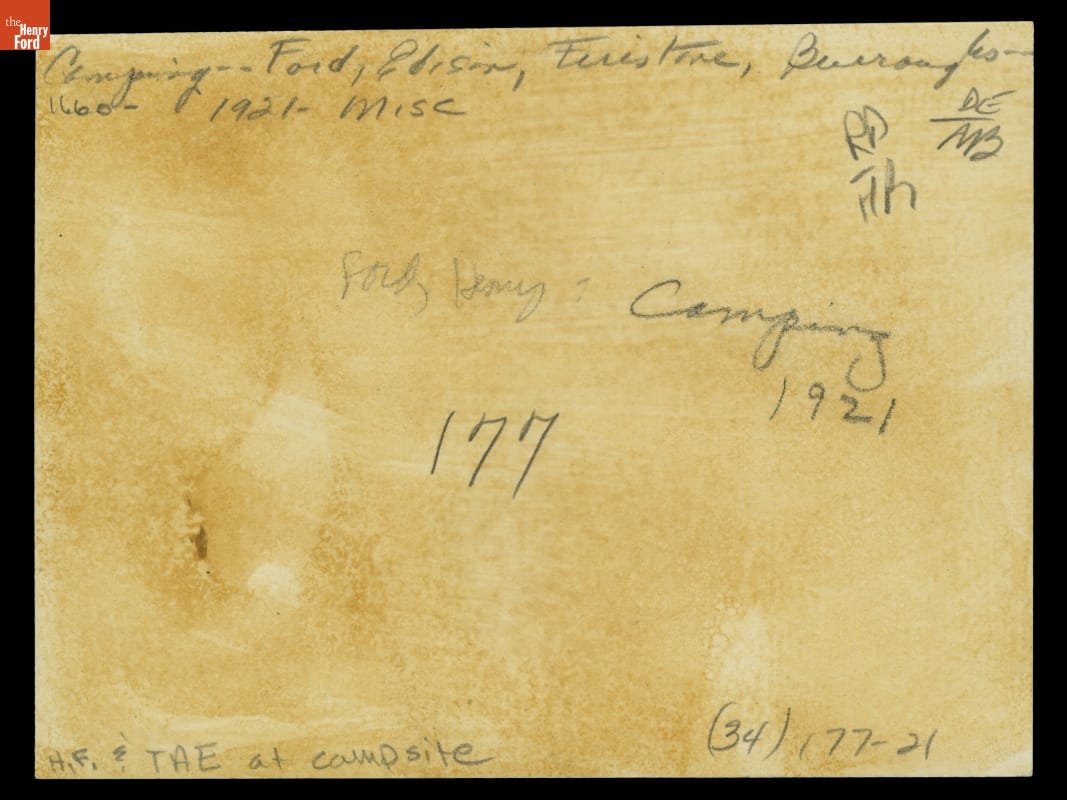 the
Henry
Ford
Camping-- Ford, Edison, Firestone, Burroughs-
1660- 1921- Misc
DE
AB
RD
TH
Ford, Henry: Camping
1921
177
H.F. & TAE at campsite
(34) 177-21